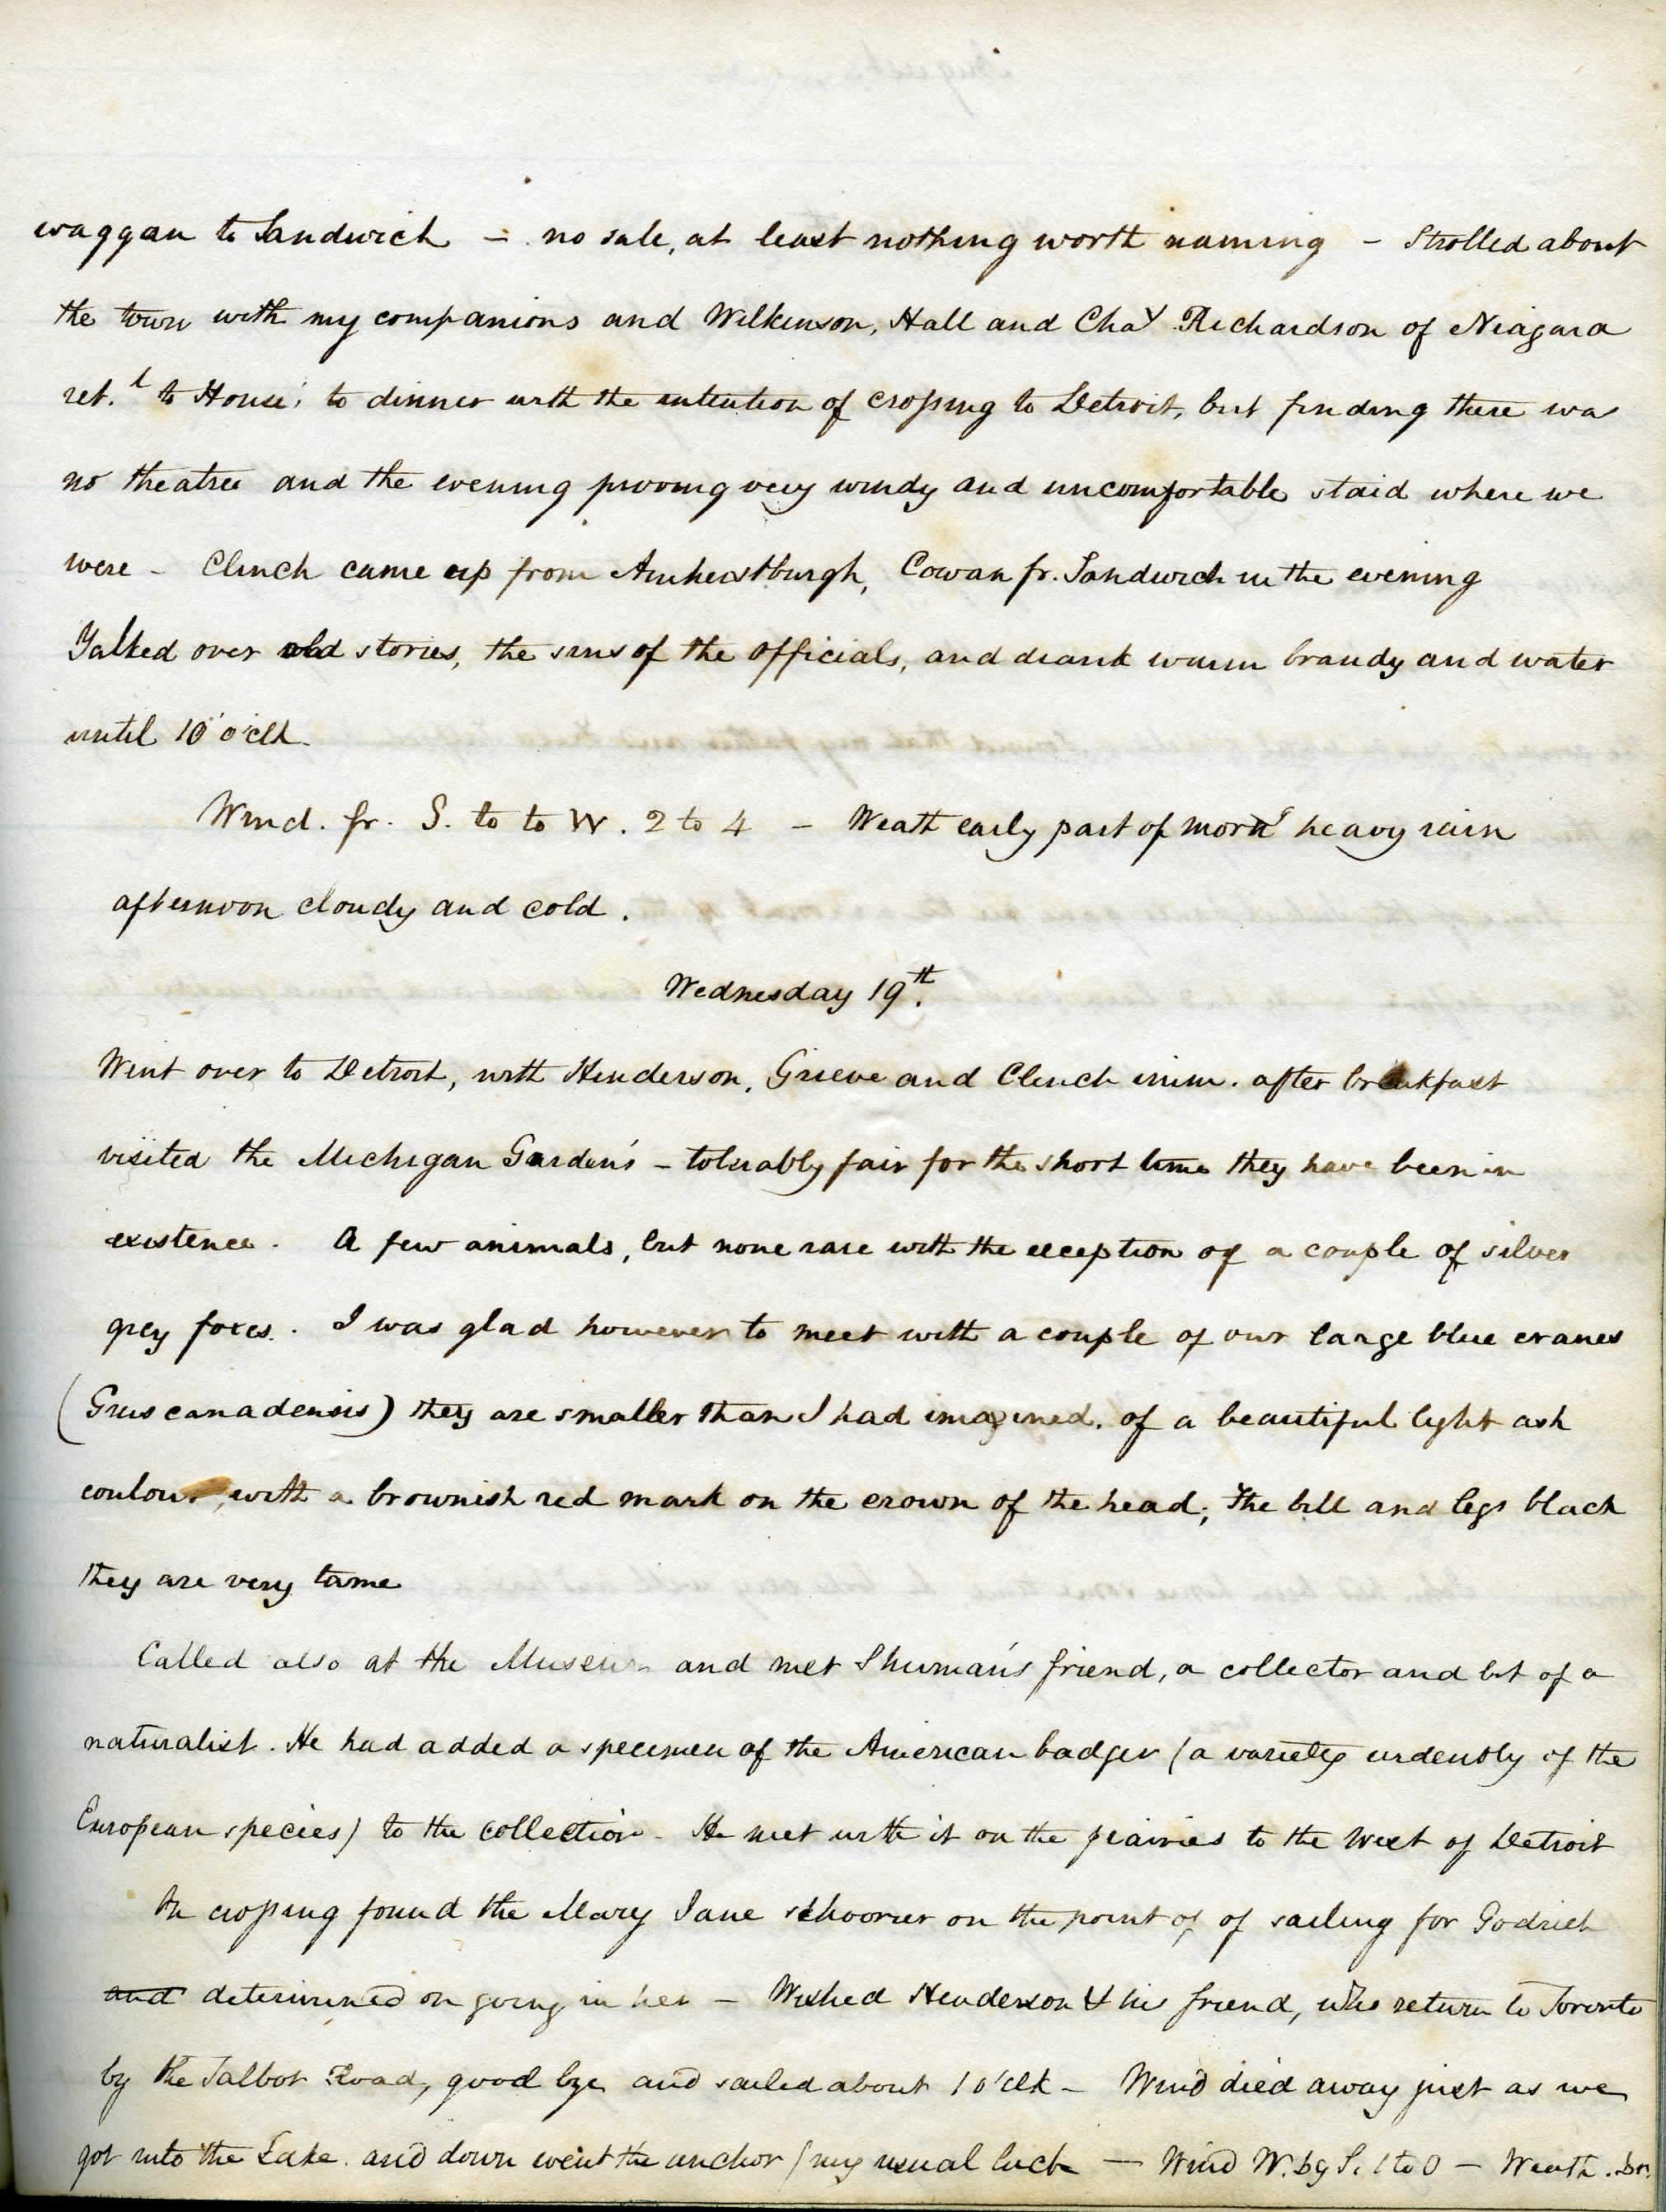 waggan to Sandwich – no sale, at least nothing worth naming – Strolled about
the town with my companions and Wilkinson, Hall and Chaˢ Richardson of Niagara
ret.ᵈ to House; to dinner with the intention of crossing to Detroit, but finding there was
no theatre and the evening proving very windy and uncomfortable staid where we
were – Clinch came up from Amherstburgh, Cowan fr. Sandwich in the evening
Talked over old stories, the sins of the officials, and drank warm brandy and water
until 10 o'clk.
Wind. fr. S. to to W. 2 to 4 – Weath early part of mornᵍ heavy rain
afternoon cloudy and cold.
Wednesday 19ᵗʰ.
Went over to Detroit, with Henderson, Grieve and Clinch imm. after breakfast
visited the Michigan Garden's – tolerably fair for the short time they have been in
existence. A few animals, but none rare with the exception of a couple of silver
grey foxes. I was glad however to meet with a couple of our large blue cranes
(Grus canadensis) they are smaller than I had imagined. of a beautiful light ash
coulour, with a brownish red mark on the crown of the head; the bill and legs black
they are very tame
Called also at the Museum and met Shuman's friend, a collector and bit of a
naturalist. He had added a specimen of the American badger (a variety evidently of the
European species) to the collection – He met with it on the prairies to the West of Detroit
In crossing found the Mary Jane schooner on the point of of sailing for Godrich
and determined on going in her – Wished Henderson & his friend, who return to Toronto
by the Talbot Road, good bye and sailed about 1 o'clk – Wind died away just as we
got into the Lake. and down went the anchor (my usual luck — Wind W. by S. 1 to 0 – Weath. br.